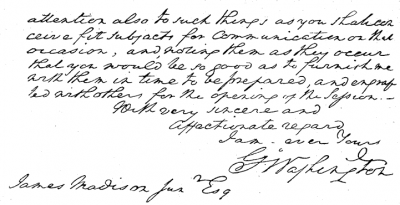 attention also to such things as you shall con
ceive fit subjects for Communication on that
occasion, and, noting them as they occur
that you would be so good as to furnish me
with them in time to be prepared, and engraf
ted with others for the opening of the Session.—
With very sincere and
Affectionate regard
I am - ever Yours
GWashington
James Madison Junr Esq